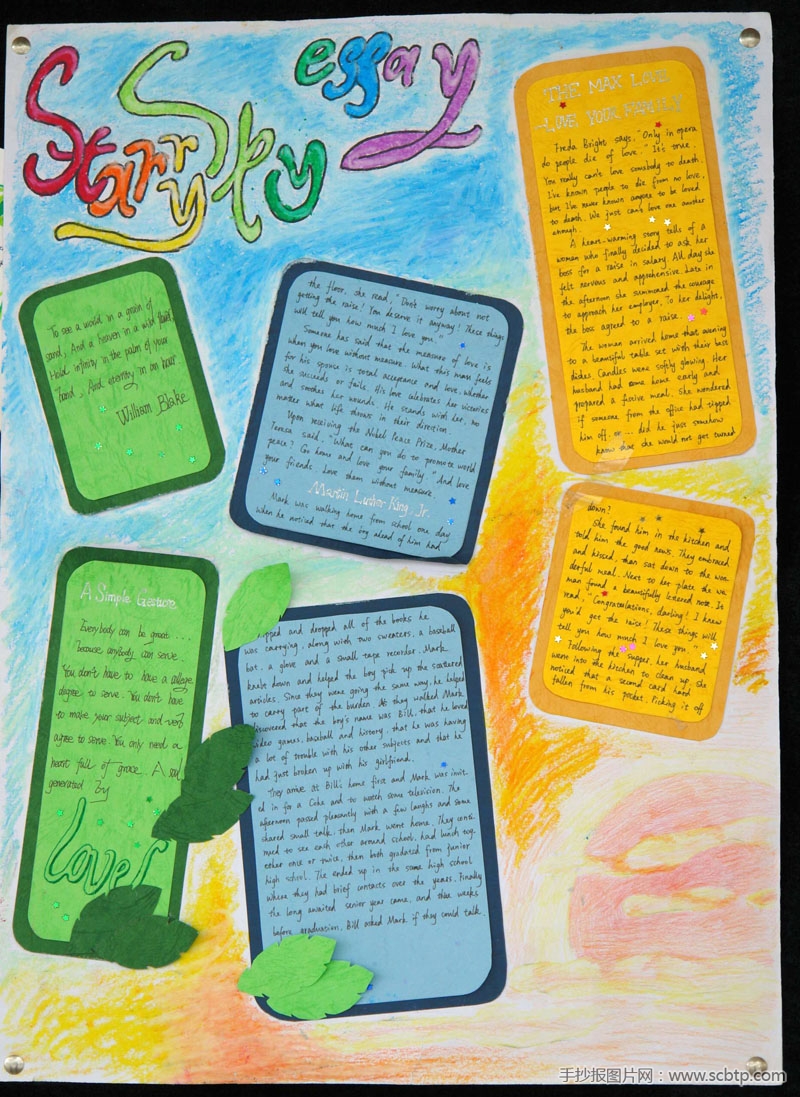 Starry Sky essay
To see a world in a grain of
sand, And a heaven in a wild
Hold infinity in the palm of your
hand, And eternity in an hour
William Blake
A Simple Gesture
Everybody can be great...
because anybody can serve.
You don't have to have a college
degree to serve. You don't have
to make your subject and verb
agree to serve. You only need a
heart full of grace. A soul
generated by
love
THE MAX LOVE
LOVE YOUR FAMILY
Freda Bright says, "Only in opera
do people die of love." It's true.
You really can't love somebody to death.
I've known people to die from no love,
but I've never known anyone to be loved
to death. We just can't love one another
enough.
A heart-warming story tells of a
woman who finally decided to ask her
boss for a raise in salary. All day she
felt nervous and apprehensive. Late in
the afternoon she summoned the courage
to approach her employer. To her delight,
the boss agreed to a raise.
The woman arrived home that evening
to a beautiful table set with their best
dishes. Candles were softly glowing. Her
husband had come home early and
prepared a festive meal. She wondered
if someone from the office had tipped
him off, or ... did he just somehow
know that she would not get turned
down?
She found him in the kitchen and
told him the good news. They embraced
and kissed, than sat down to the won-
derful meal. Next to her plate the wo-
man found a beautifully lettered note. It
read, "Congratulations, darling! I knew
you'd get the raise! These things will
tell you how much I love you."
Following the supper, her husband
went into the kitchen to clean up. She
noticed that a second card had
fallen from his pocket. Picking it off
the floor, she read, "Don't worry about not
getting the raise! You deserve it anyway! These things
will tell you how much I love you."
Someone has said that the measure of love is
when you love without measure. What this man feels
for his spouse is total acceptance and love, whether
she succeeds or fails. His love celebrates her victories
and soothes her wounds. He stands with her, no
matter what life throws in their direction.
Upon receiving the Nobel Peace Prize, Mother
Teresa said, "What can you do to promote world
peace? Go home and love your family." And love
your friends. Love them without measure.
Martin Luther King, Jr.
Mark was walking home from school one day
when he noticed that the boy ahead of him had
and dropped all of the books he
was carrying, along with two sweaters, a baseball
bat, a glove and a small tape recorder. Mark
knelt down and helped the boy pick up the scattered
articles. Since they were going the same way, he helped
to carry part of the burden. As they walked Mark
discovered that the boy's name was Bill, that he loved
video games, baseball and history, that he was having
a lot of trouble with his other subjects and that he
had just broken up with his girlfriend.
They arrive at Bill's home first and Mark was invit-
ed in for a Coke and to watch some television. The
afternoon passed pleasantly with a few laughs and some
shared small talk, then Mark went home. They conti-
nued to see each other around school, had lunch tog-
ether once or twice, then both gradated from junior
high school. The ended up in the same high school
where they had brief contacts over the years. Finally
the long awaited senior year came, and three weeks
before graduation, Bill asked Mark if they could talk.
手抄报图片网：www.scbtp.com